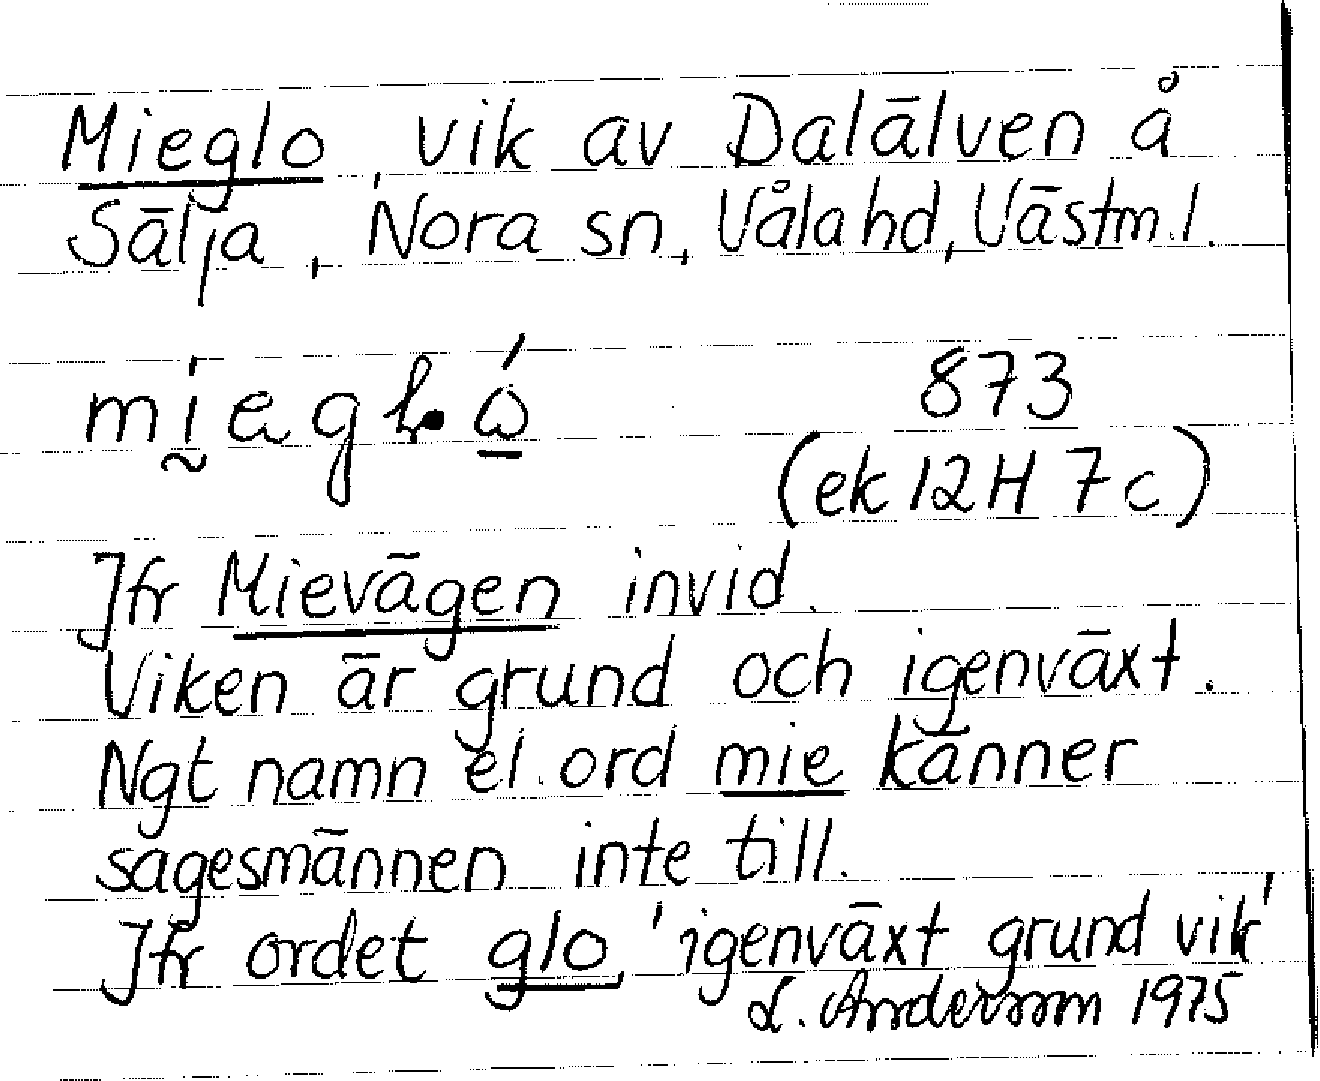 Mieglo, vik av Dalälven å
Sälja, Nora sn, Våla hd, Västml.
873
(ek 12H 7c)
Jfr Mievägen invid.
Viken är grund och igenväxt.
Ngt namn el. ord mie känner
sagesmännen inte till.
Jfr ordet glo, 'igenväxt grund vik'
L. Andersson 1975